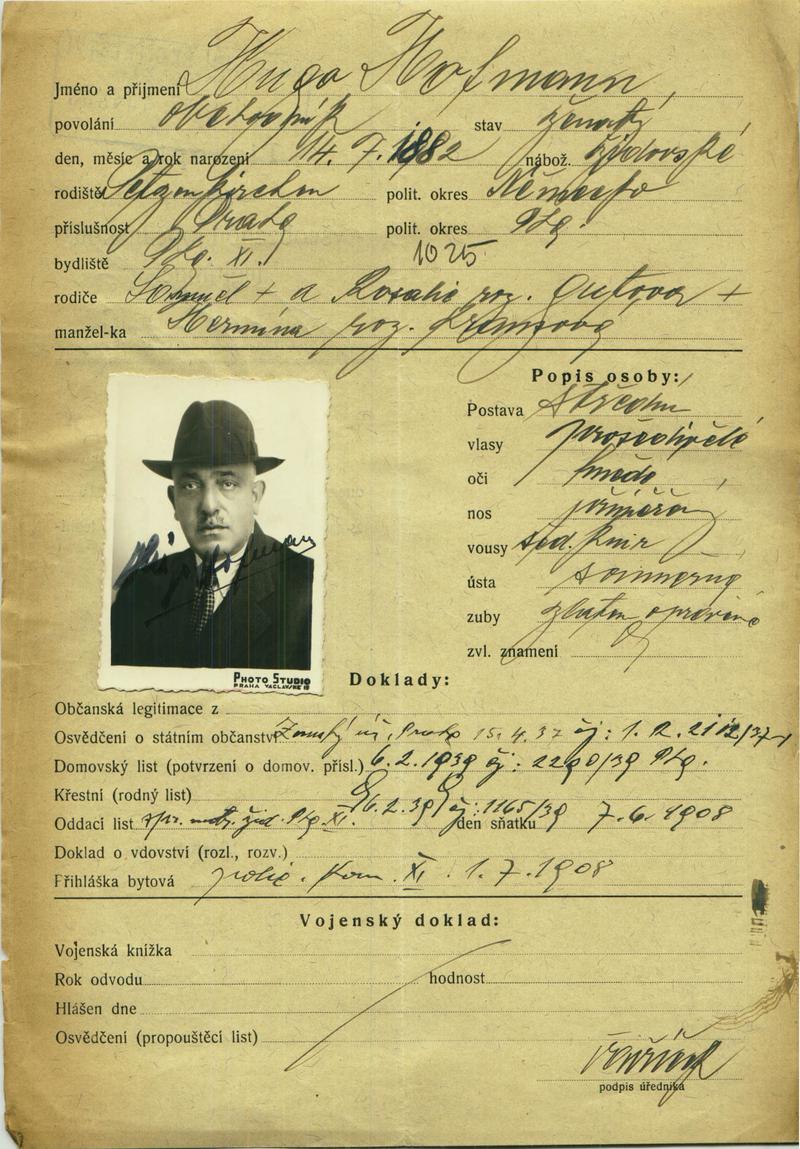 Jméno a přijmení Hugo Hofmann,
povolání obchodník stav ženatý,
den, měsíc a rok narození 14. 7. 1882 nábož. židovské
rodiště polit. okres Německo
příslušnost Praha polit. okres Phg.
bydliště Phg. XI. 1025
rodiče + a Rosalie roz. +
manžel-ka Hermína roz.
Popis osoby:
Postava střední
vlasy prošedivělé
oči hnědé,
nos
vousy šed. knír
ústa
zuby zlatem
zvl. znamení
Hugo Hofmann
PHOTO STUDIO
PRAHA VACLAVSKÉ
Doklady:
Občanská legitimace z
Osvědčení o státním občanství Zemský úř. Praha 15. 4. 37 čj:
Domovský list (potvrzení o domov. přísl.) 6. 2. 1939 čj: 2290/39 Phg.
Křestní (rodný list) 6. 2. 39 čj: 1165/39
Oddací list žid. Phg. XI. den sňatku 7. 6. 1908
Doklad o vdovství (rozl., rozv.)
Přihláška bytová polic. kom. XI. 1. 7. 1908
Vojenský doklad:
Vojenská knížka
Rok odvodu hodnost
Hlášen dne
Osvědčení (propouštěcí list)
podpis úředníka